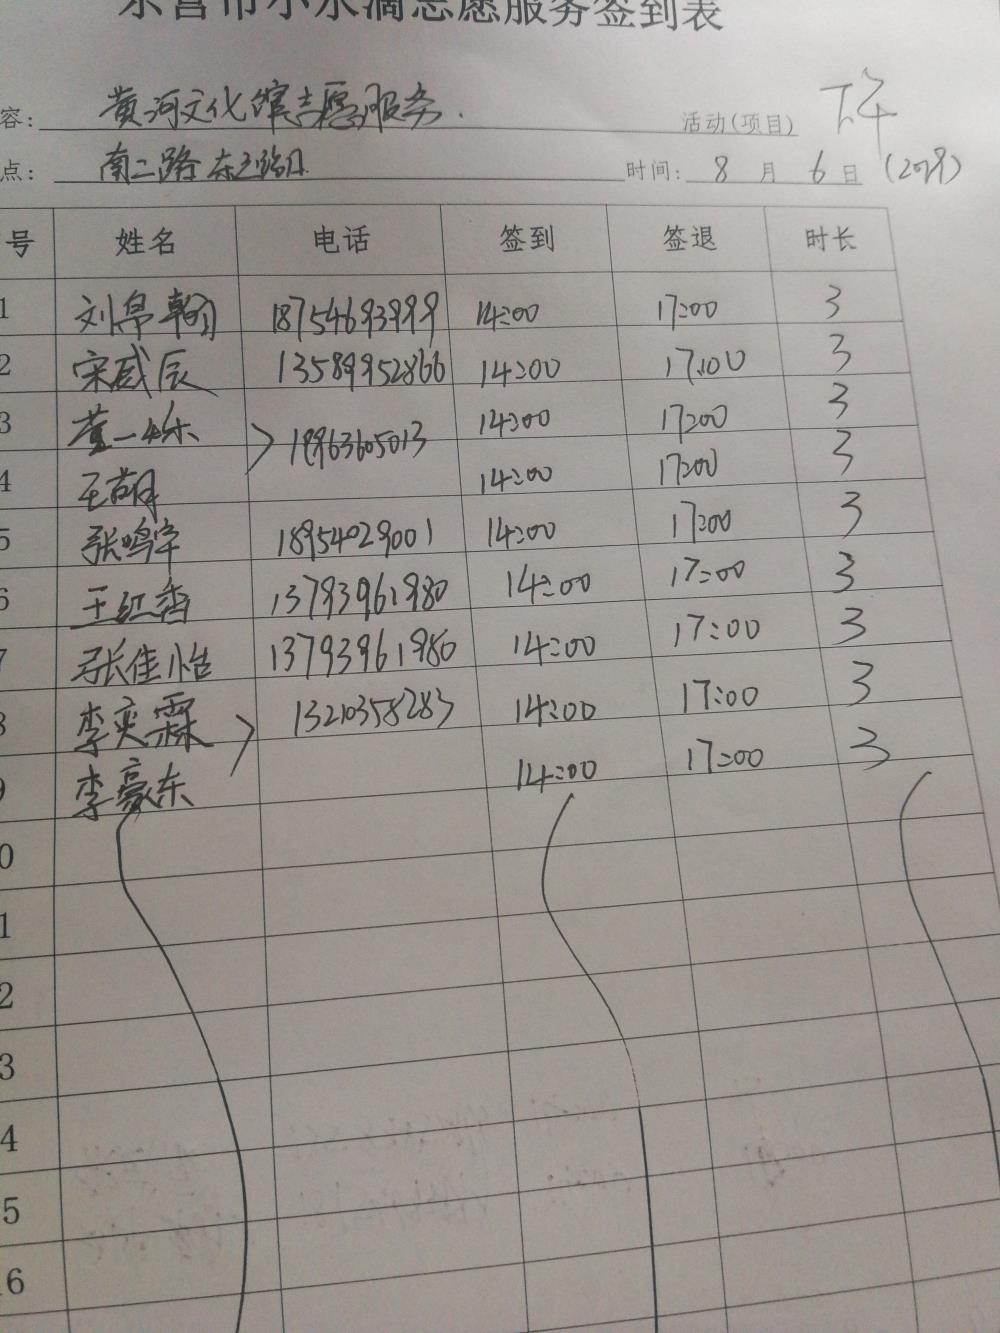 东营市小水滴志愿服务签到表
容: 黄河文化馆志愿服务. 活动(项目) 下午
点: 南二路 时间: 8 月 6 日 (2019)
号 姓名 电话 签到 签退 时长
1 刘帛翰 18754693999 14:00 17:00 3
2 宋威辰 13589952866 14:00 17:00 3
3 董一烁 18963605013 14:00 17:00 3
4 王萌 14:00 17:00 3
5 张鸣宇 18954029001 14:00 17:00 3
6 王红香 13793961980 14:00 17:00 3
7 张佳怡 13793961980 14:00 17:00 3
8 李奕霖 13210358283 14:00 17:00 3
9 李豪东 14:00 17:00 3
0
1
2
3
4
5
16